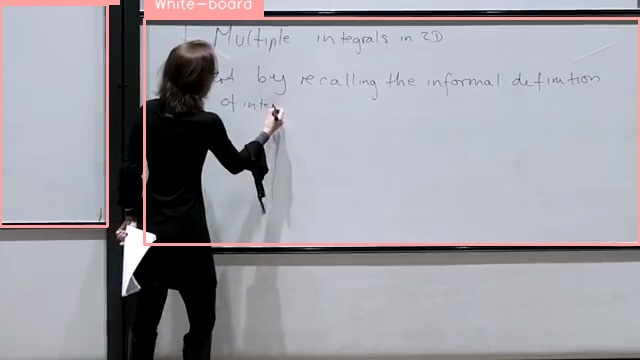 White-board
Multiple integrals in 2D
by recalling the informal definition
of inte